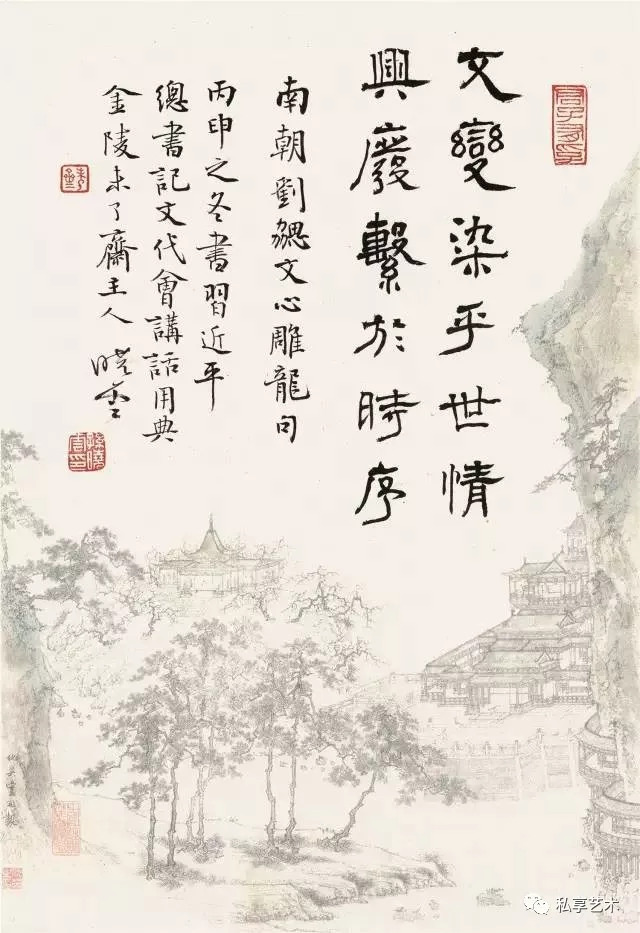 文變染乎世情
興廢繫於時序
南朝劉勰文心雕龍句
丙申之冬書習近平
總書記文代會講話用典
金陵未了齋主人 曉雲
私享艺术